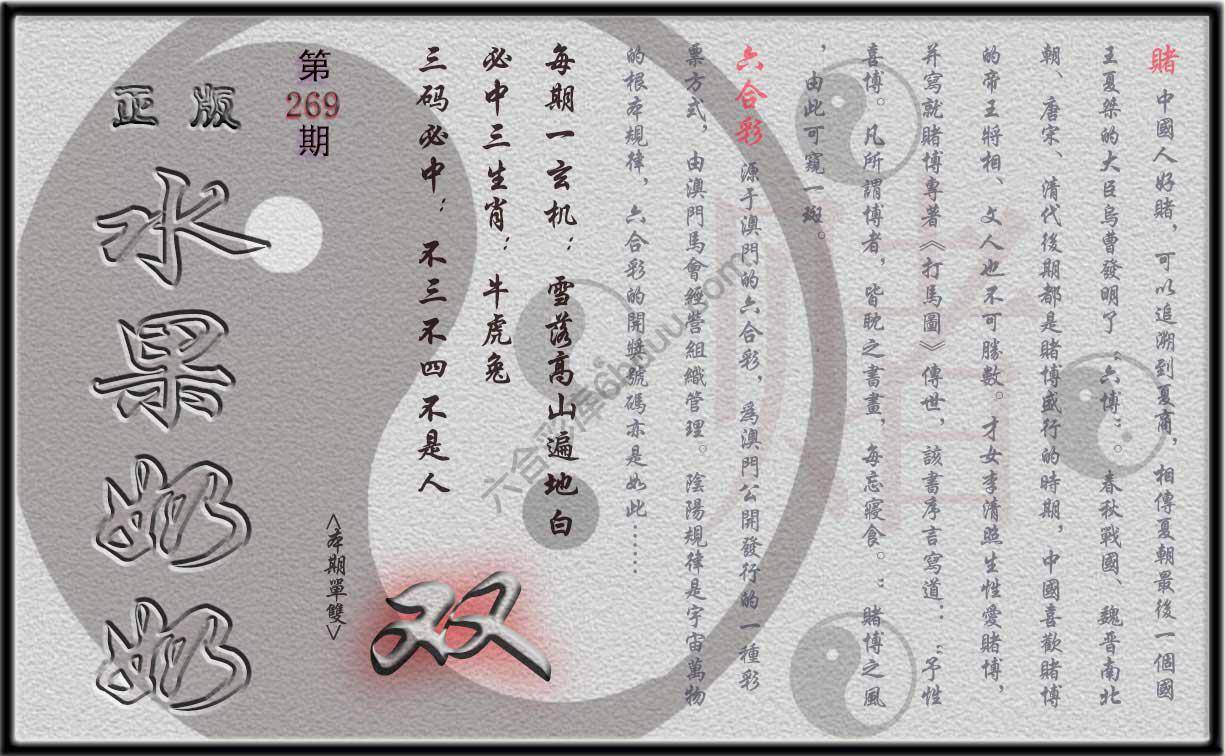 賭 中國人好賭，可以追溯到夏商，相傳夏朝最後一個國
王夏桀的大臣烏曹發明了“六博”。春秋戰國、魏晋南北
朝、唐宋、清代後期都是賭博盛行的時期，中國喜歡賭博
的帝王將相、文人也不可勝數。才女李清照生性愛賭博，
并寫就賭博專著《打馬圖》傳世，該書序言寫道：“予性
喜博。凡所謂博者，皆耽之書畫，每忘寢食。”賭博之風
，由此可窺一斑。
六合彩 源于澳門的六合彩，爲澳門公開發行的一種彩
票方式，由澳門馬會經營組織管理。陰陽規律是宇宙萬物
的根本規律，六合彩的開獎號碼亦是如此……
每期一玄机：雪落高山遍地白
必中三生肖：牛虎兔
三码必中：不三不四不是人
<本期單雙>
双
第
269
期
正版
水果奶奶
賭
六合彩库6hduu.com